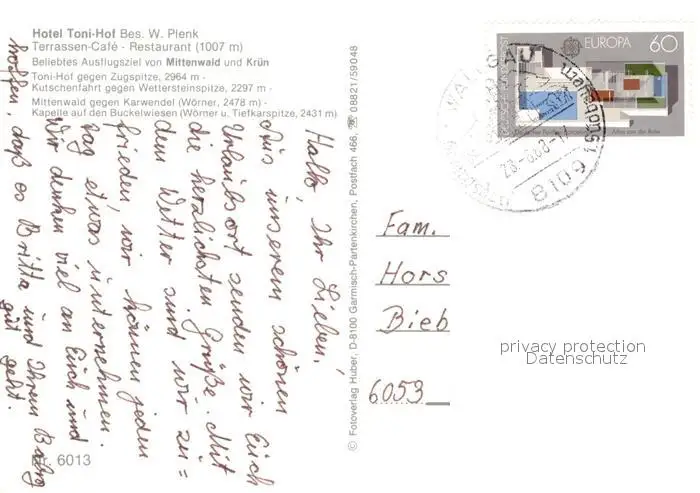 Hotel Toni-Hof Bes. W. Plenk
Terrassen-Café - Restaurant (1007 m)
Beliebtes Ausflugsziel von Mittenwald und Krün
Toni-Hof gegen Zugspitze, 2964 m -
Kutschenfahrt gegen Wettersteinspitze, 2297 m -
Mittenwald gegen Karwendel (Wörner, 2478 m) -
Kapelle auf den Buckelwiesen (Wörner u. Tiefkarspitze, 2431 m)
Hallo, Ihr Lieben!
Aus unserem schönen
Urlaubsort senden wir Euch
die herzlichsten Grüße. Mit
dem Wetter sind wir zu=
frieden, wir können jeden
Tag etwas unternehmen.
Wir denken viel an Euch und
hoffen, daß es Britta und Ihrem Baby
gut geht.
Nr. 6013
© Fotoverlag Huber, D-8100 Garmisch-Partenkirchen, Postfach 466, ☎ 08821/59048
EUROPA 60
WALLGAU
28.-6.88-17
8109
Fam.
Hors
Bieb
6053
privacy protection
Datenschutz